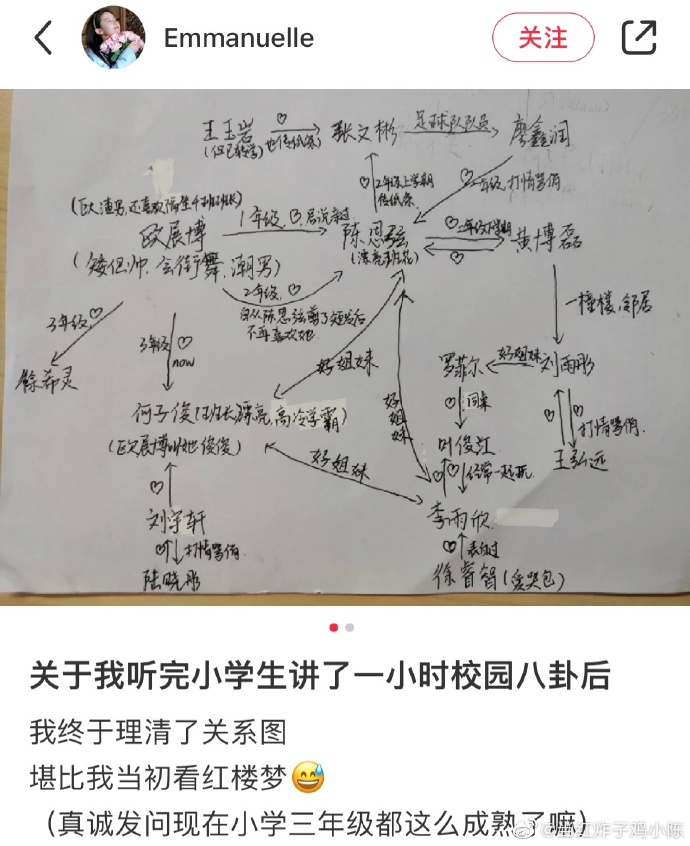 Emmanuelle
关注
王玉岩 ♡ 张文彬 足球队队员 廖鑫润
(但已转学) 也传纸条
♡ 2年级上学期 传纸条
♡ 2年级,打情骂俏
(欧渣男,还喜欢隔壁4班班长)
欧展博 1年级,♡,居说亲过 陈思弦 ♡2年级下学期 黄博磊
(矮但帅,会街舞,潮男) (漂亮班花) ♡
2年级,♡
自从陈思弦剪了短发后
不再喜欢她
一幢楼,邻居
3年级,♡
徐希灵
3年级 ♡
now
好姐妹
好姐妹
罗菲尔 好姐妹 刘雨彤
♡ 同桌
♡ ♡ 打情骂俏.
何子俊(班长漂亮,高冷学霸)
(欧展博叫她俊俊)
叶俊江 王弘远
♡ ♡ 经常一起玩
好姐妹
♡
刘宇轩 李雨欣
♡ 打情骂俏. ♡ 表白过
陆晓彤 徐睿智(爱哭包)
关于我听完小学生讲了一小时校园八卦后
我终于理清了关系图
堪比我当初看红楼梦😅
（真诚发问现在小学三年级都这么成熟了嘛）
炸子鸡小陈